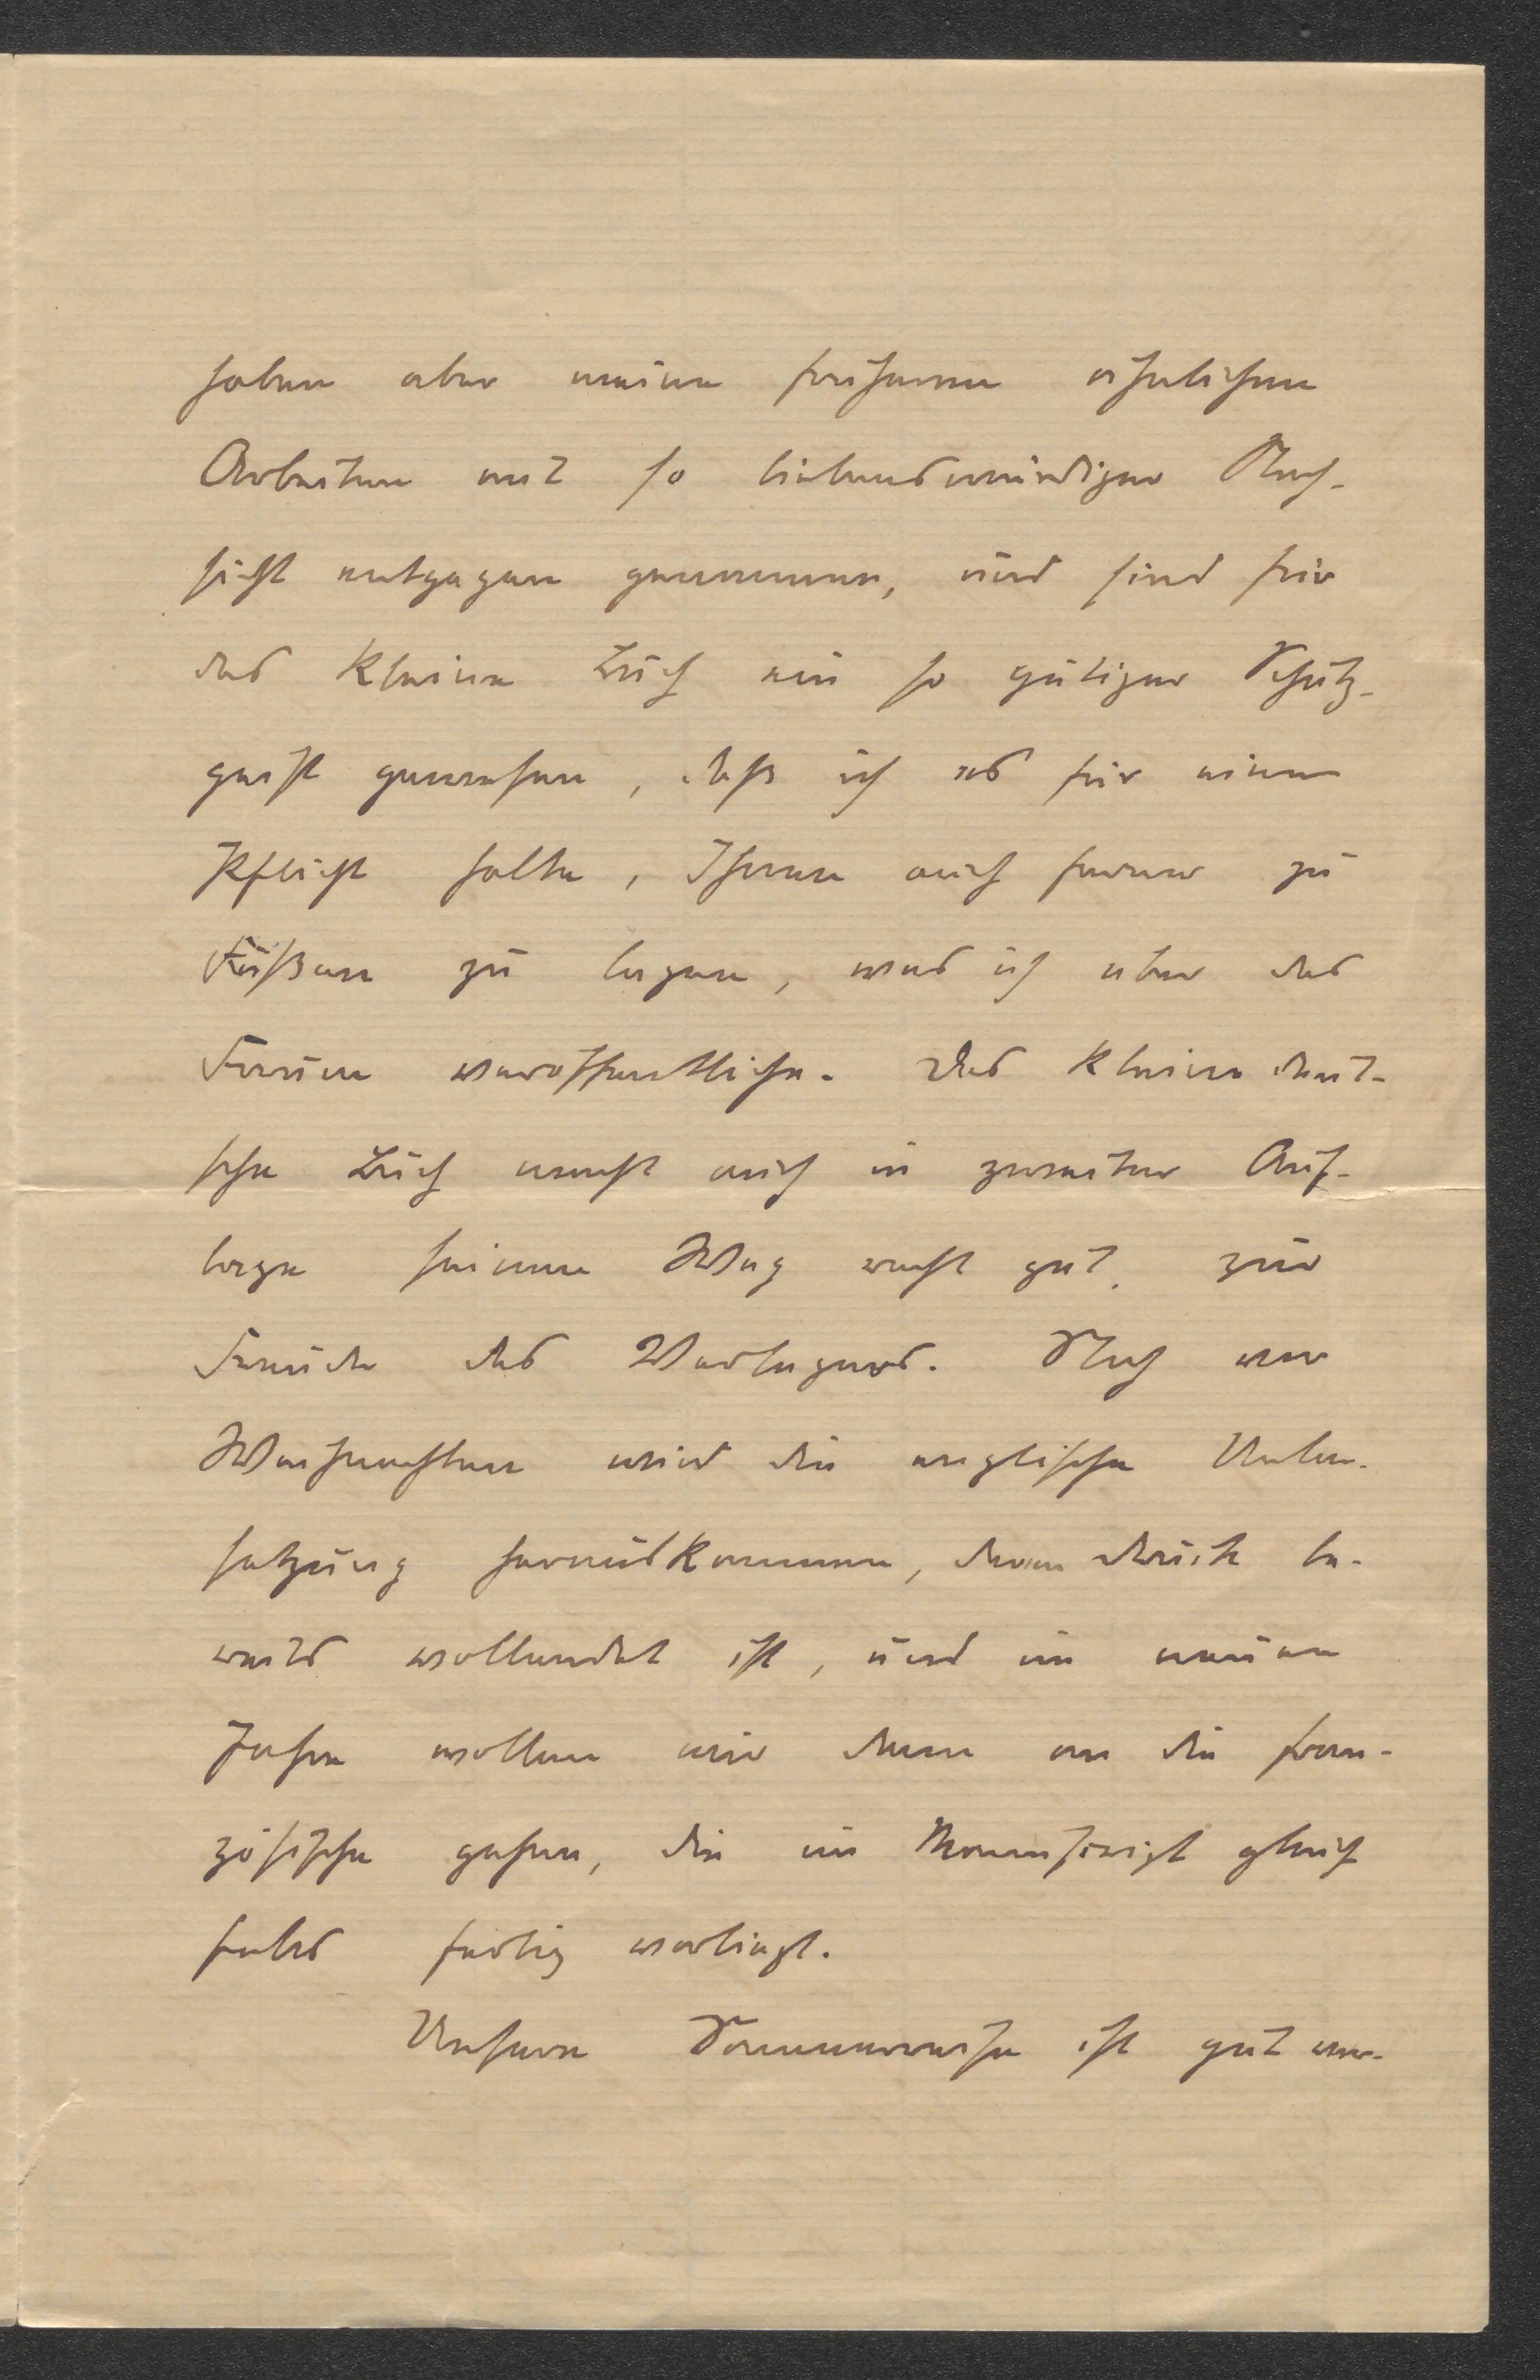 haben aber meine früheren ähnlichen
Arbeiten mit so liebenswürdiger Nach-
sicht entgegen genommen, und sind für
das kleine Buch ein so gütiger Schutz-
geist gewesen, daß ich es für eine
Pflicht halte, Ihnen auch ferner zu
Füßen zu legen, was ich über das
Forum veröffentliche. Das kleine deut-
sche Buch macht auch in zweiter Auf-
lage seinen Weg recht gut, zur
Freude des Verlegers. Noch vor
Weihnachten wird die englische Ueber-
setzung herauskommen, deren Druck be-
reits vollendet ist, und im neuen
Jahre wollen wir dann an die fran-
zösische gehen, die im Manuskript gleich
falls fertig vorliegt.
Unsere Sommerreise ist gut ver-